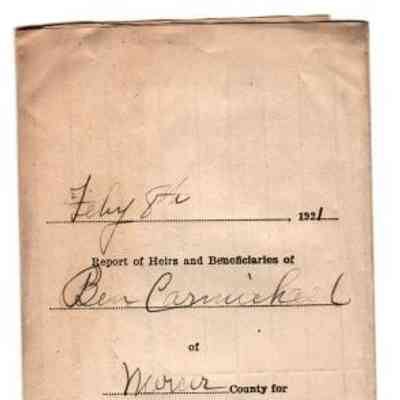 Feby 8th, 1921
Report of Heirs and Beneficiaries of
Ben Carmichael
of
Mercer County for